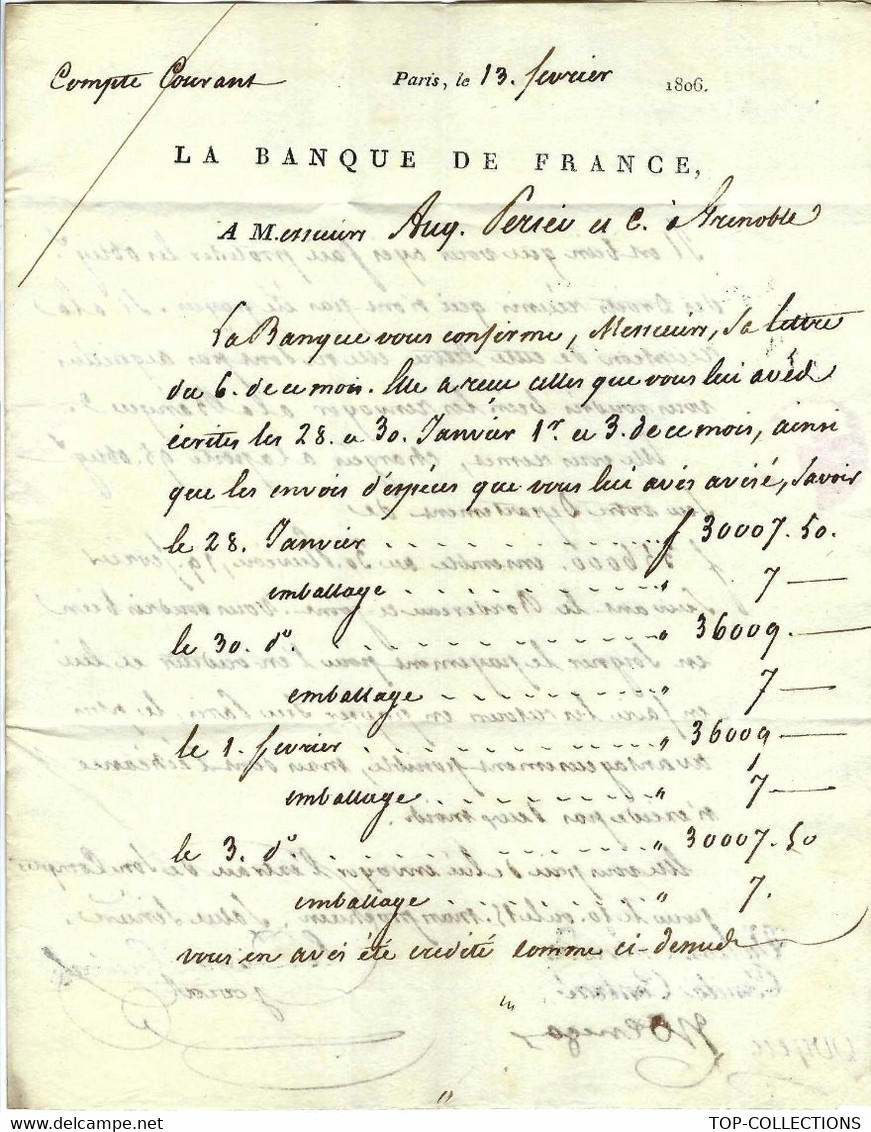 Compte Courant
Paris, le 13. fevrier 1806.
LA BANQUE DE FRANCE,
A Messieurs Aug. Perier et C. à Grenoble
La Banque vous confirme, Messieurs, sa lettre
du 6. de ce mois. Elle a reçu celles que vous lui avéd
écrites les 28. et 30. Janvier 1er. et 3. de ce mois, ainsi
que les envois d'espéces que vous lui avés avisé, savoir
le 28. Janvier . . . . . . . . . . . . . . f 30007. 50.
emballage . . . . . . . . . . . „ 7 —
le 30. do. . . . . . . . . . . . . . . „ 36009. —
emballage . . . . . . . . . . „ 7 —
le 1. fevrier . . . . . . . . . . . . . „ 36009 —
emballage . . . . . . . . . . „ 7 —
le 3. do . . . . . . . . . . . . . . . „ 30007. 50
emballage . . . . . . . . . . „ 7.
vous en avés été credité comme ci-dessud
TOP-COLLECTIONS